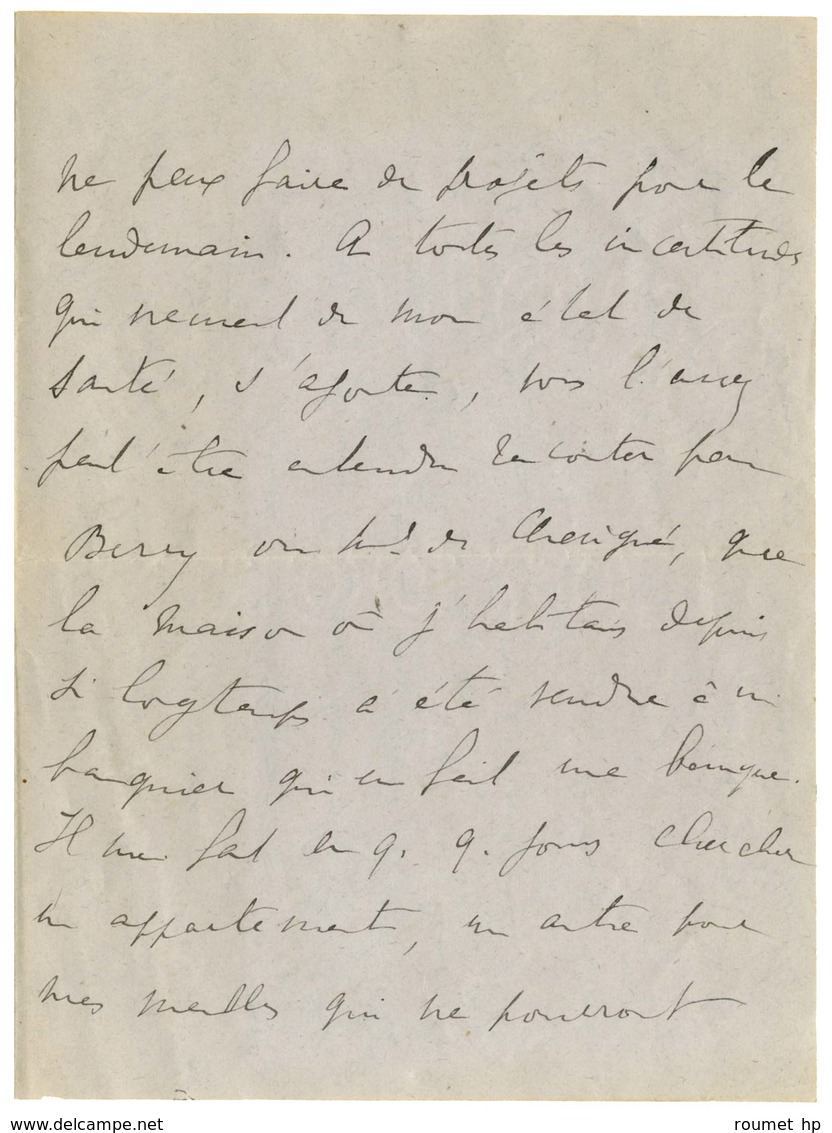 ne peux faire de projets pour le
lendemain. A toutes les incertitudes
qui viennent de mon état de
santé, s'ajoute, vous l'avez
peut'être entendu raconter par
Berry ou Me de Chevigné, que
la maison où j'habitais depuis
si longtemps a été vendue à un
banquier qui en fait une banque.
Il me faut en q. q. jours chercher
un appartement, un autre pour
mes meubles qui ne pourront
www.delcampe.net
roumet hp